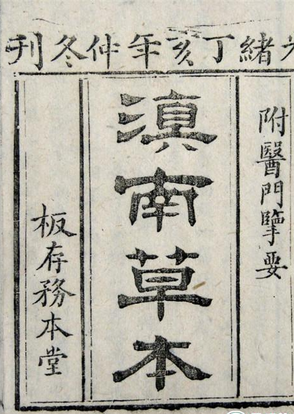 光緒丁亥年仲冬刊
附醫門擥要
滇南草本
板存務本堂